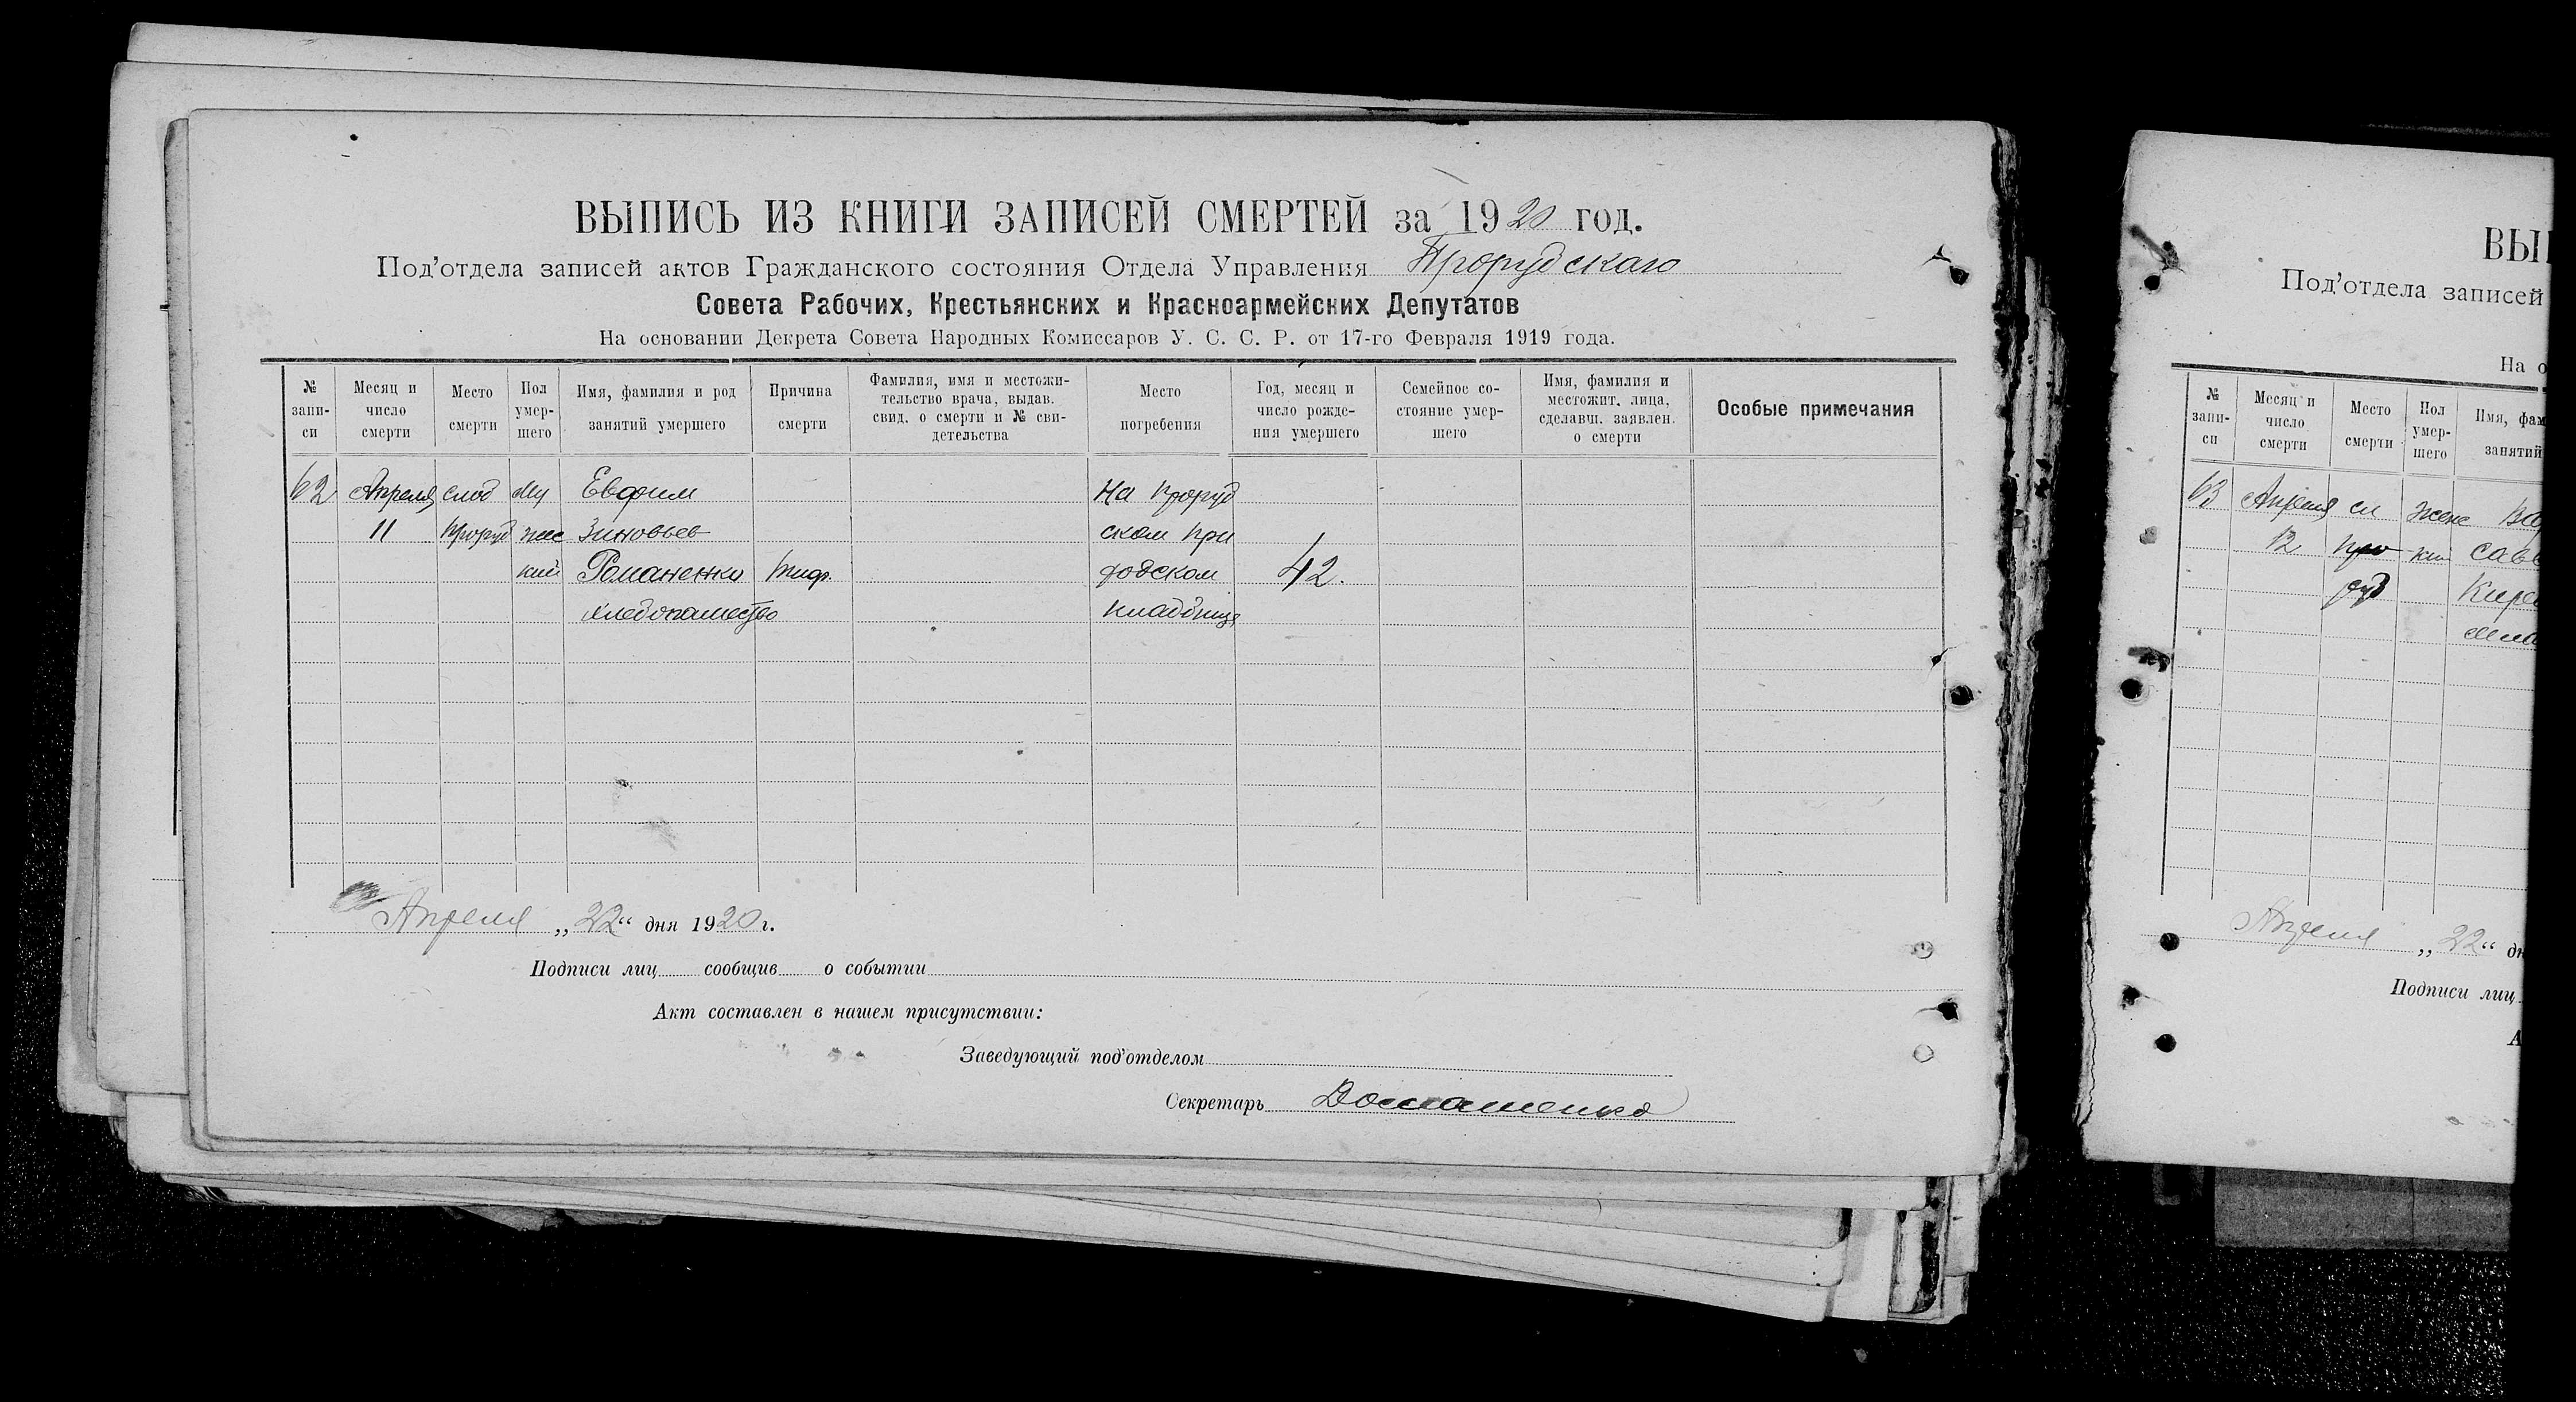 ВЫПИСЬ ИЗ КНИГИ ЗАПИСЕЙ СМЕРТЕЙ за 1920 год.
Под'отдела записей актов Гражданского состояния Отдела Управления Прорубскаго
Совета Рабочих, Крестьянских и Красноармейских Депутатов
На основании Декрета Совета Народных Комиссаров У. С. С. Р. от 17-го Февраля 1919 года.
№ запи-си
Месяц и число смерти
Место смерти
Пол умер-шего
Имя, фамилия и род занятий умершего
Причина смерти
Фамилия, имя и местожи-тельство врача, выдав. свид. о смерти и № сви-детельства
Место погребения
Год, месяц и число рожде-ния умершего
Семейное со-стояние умер-шего
Имя, фамилия и местожит. лица, сделавш. заявлен. о смерти
Особые примечания
62 Апреля слоб Му Евфим На Проруб
11 Проруб жес Зиновьев ском При
кий Романенко тиф. ходском 42.
хлебопашество кладбище
Апреля „22" дня 1920 г.
Подписи лиц сообщив о событии
Акт составлен в нашем присутствии:
Заведующий под'отделом
Секретарь Домашенко
ВЫП
Под'отдела записей
На о
№ запи-си
Месяц и число смерти
Место смерти
Пол умер-шего
Имя, фам
занятий
63 Апреля сл жене
12 Про кий Савв
руб Кире
Апреля „22" дн
Подписи лиц
А